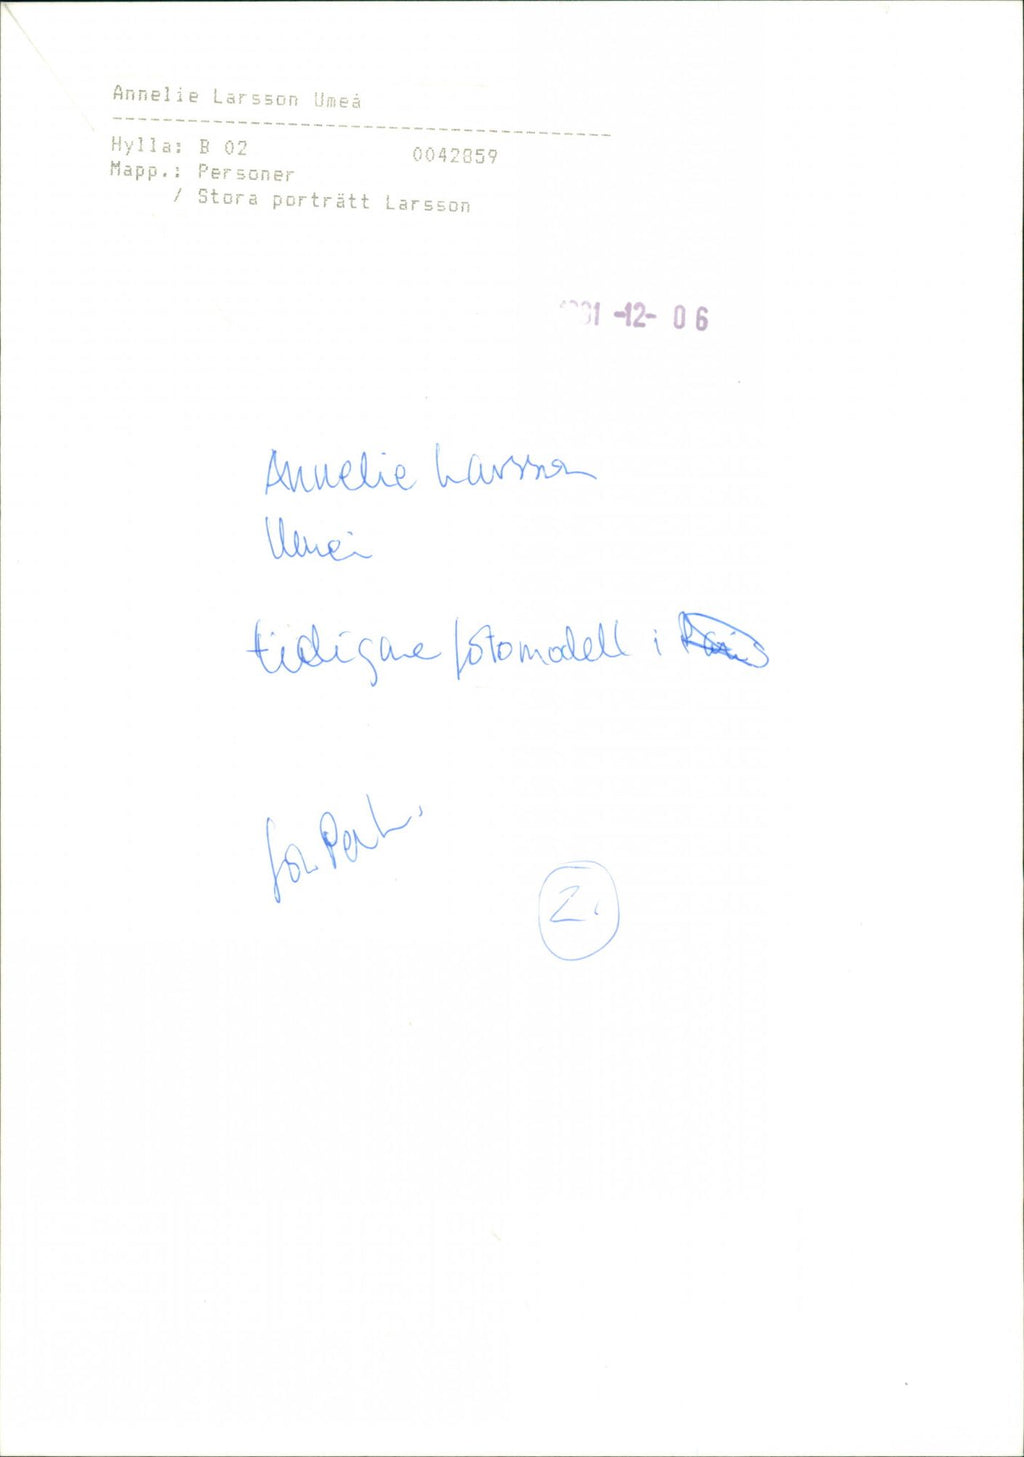 Annelie Larsson Umeå
---------------------------------------
Hylla: B 02 0042859
Mapp.: Personer
/ Stora porträtt Larsson
-12-06
Annelie Larsson
Umeå
tidigare fotomodell i
2.